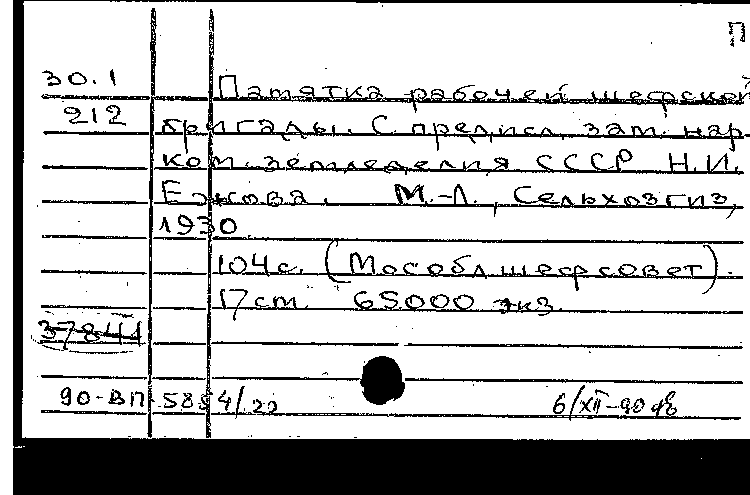 П
30.1 Памятка рабочей шефской
212 бригады. С предисл. зам. нар-
ком. земледелия СССР Н.И.
Ежова. М.-Л., Сельхозгиз,
1930
104с. (Мособлшефсовет).
17 ст. 65000 экз.
37841
90-ВП 5854/20 6/XII-90